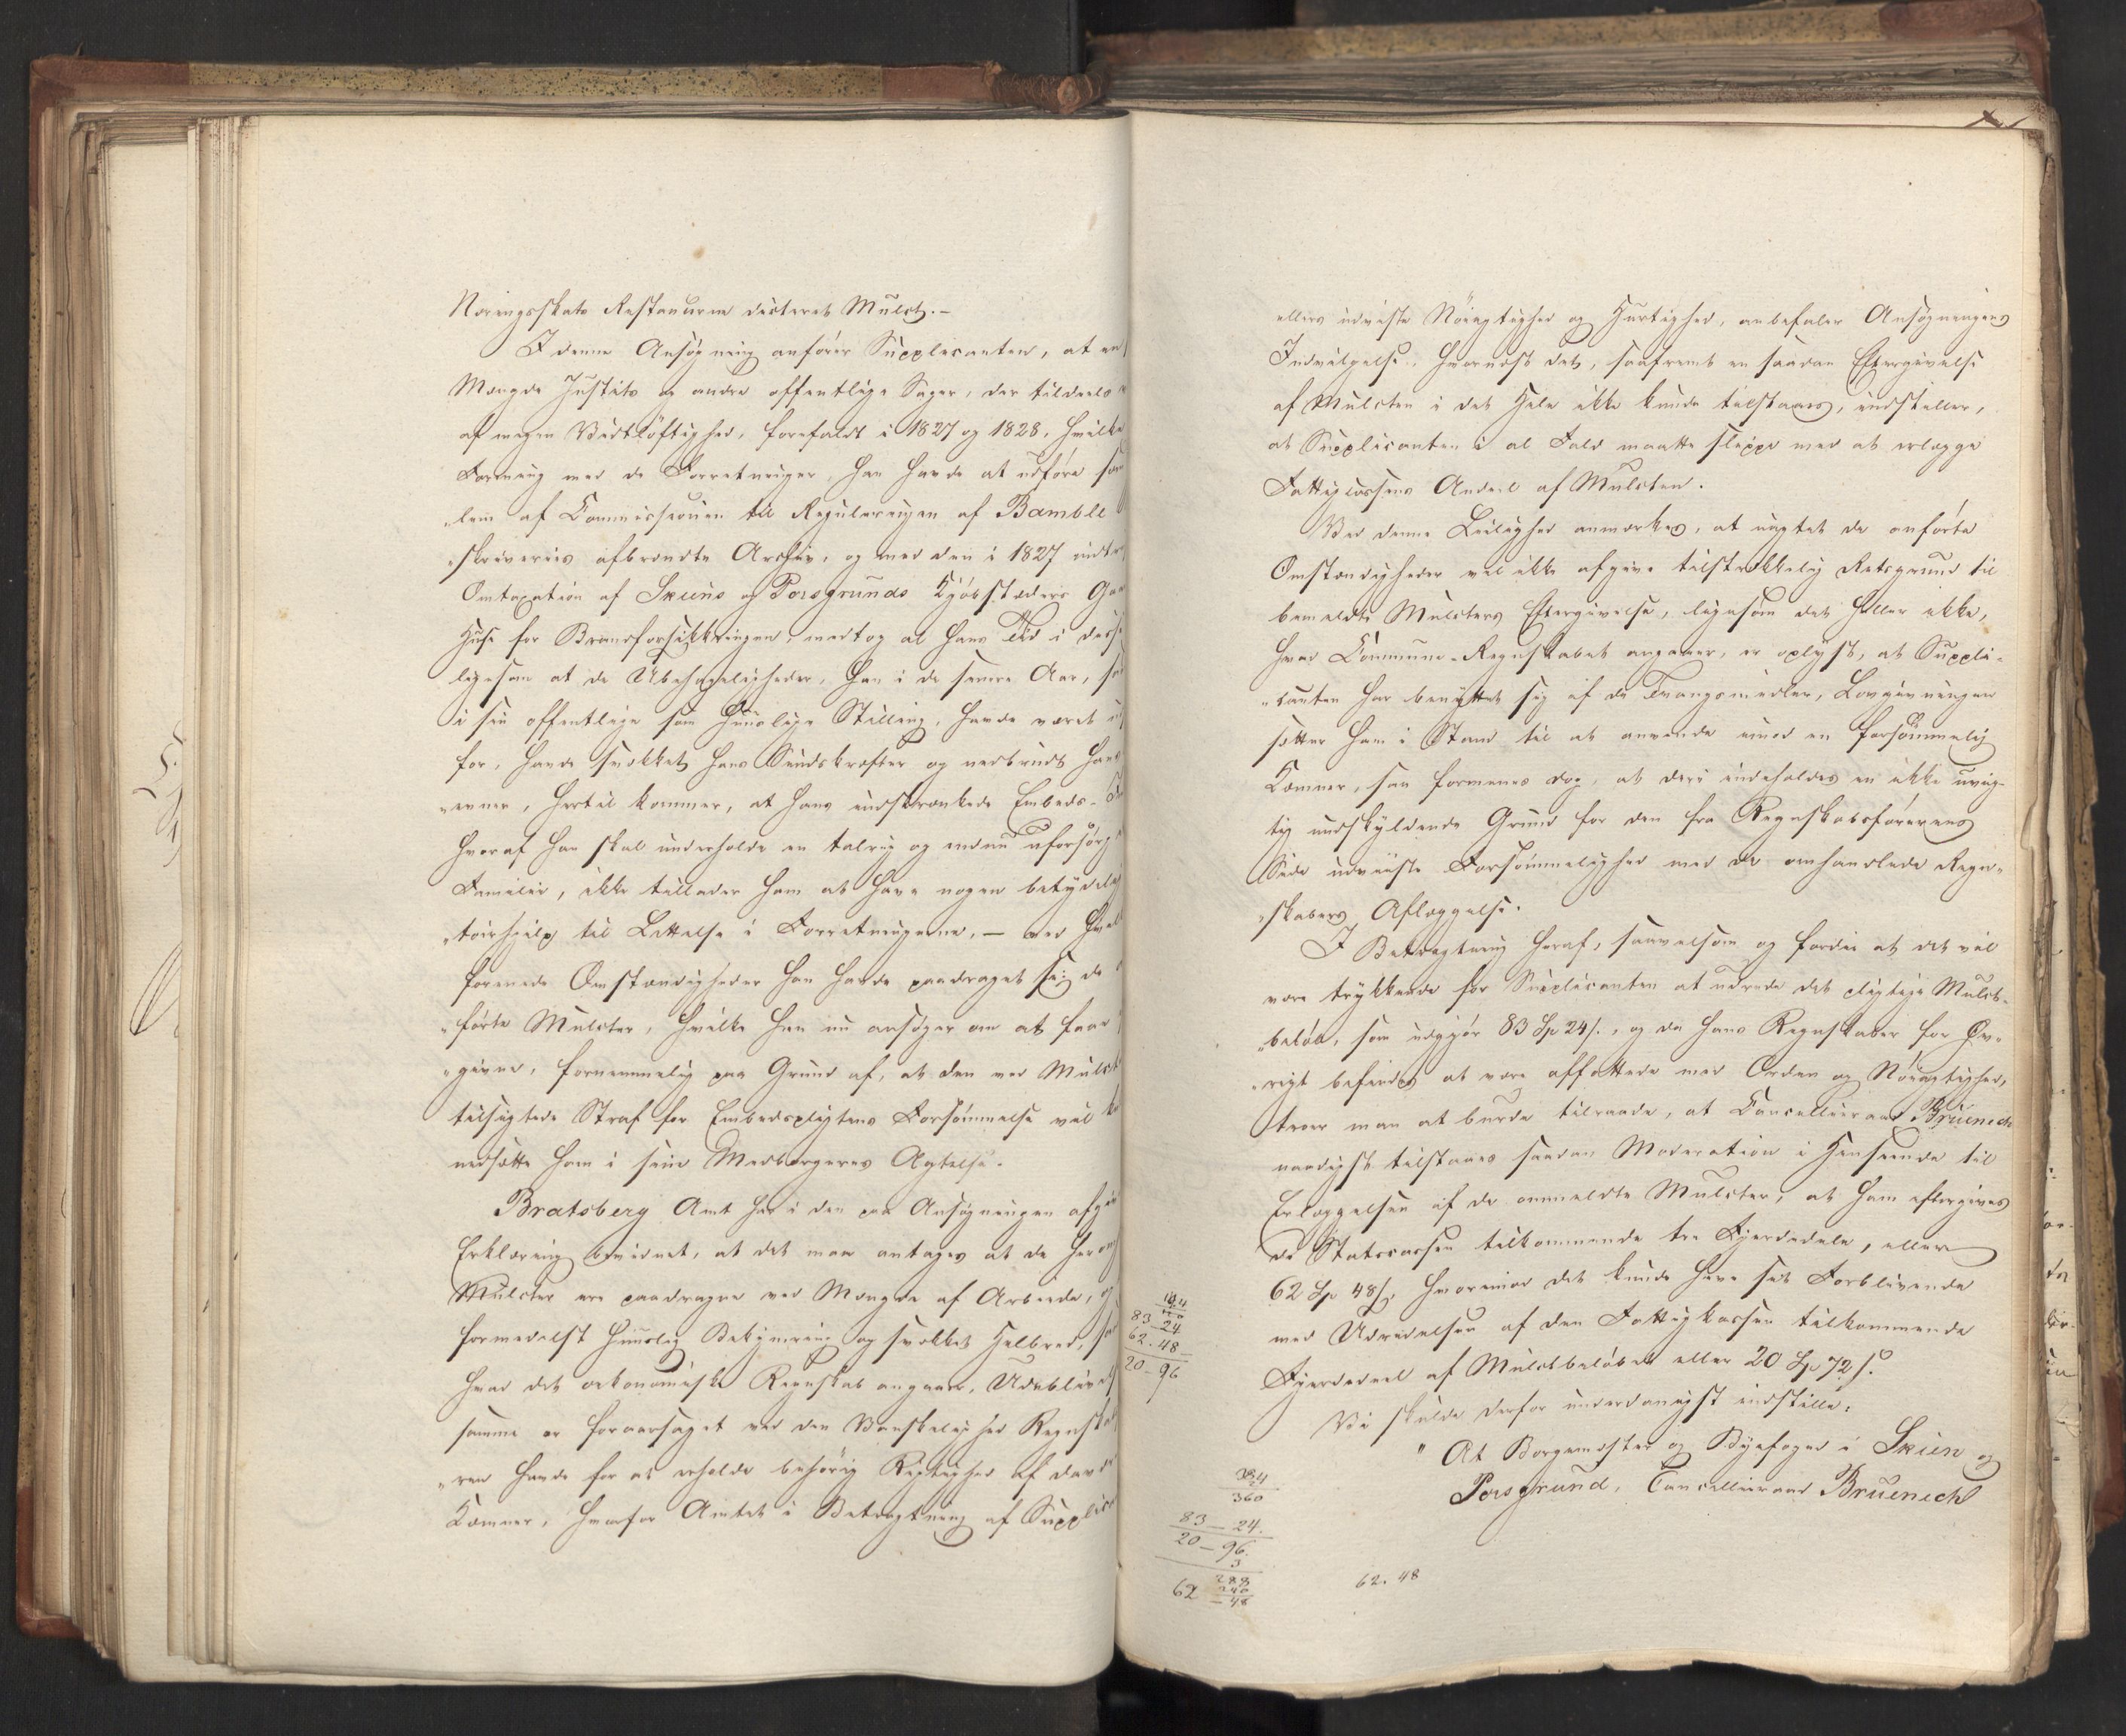 Næringsskats Restancerne dicteret Mulct. –
I denne Ansøgning anfører Supplicanten, at en
Mængde Justits og andre offentlige Sager, der tildeels
af megen Vidtløftighed, forefaldt i 1827 og 1828, hvilke
Forening med de Forretninger, han havde at udføre som
„lem af Commissionen til Reguleringen af Bamble
„skriveries afbrændte Archiv, og med den i 1827
Omtaxation af Skiens og Porsgrunds Kjøbstæders
Huse for Brandforsikkringen, medtog al hans Tid i disse
ligesom at de Ubehageligheder, han i de senere Aar,
i sin offentlige som huuslige Stilling, havde været
for, havde svækket hans Sindskræfter og nedbrudt hans
„evner, hertil kommer, at hans indskrænkede Embeds-
hvoraf han skal underholde en talrig og endnu uforsørget
Familie, ikke tillader ham at have nogen betydelig
„toirhjelp til Lettelse i Forretningerne, — ved
forenede Omstændigheder han havde paadraget sig de
„førte Mulcter, hvilke han nu ansøger om at faae
„givne, fornemmelig paa Grund af, at den ved Mulct
tilsigtede Straf for Embedspligtens Forsømmelse vil
nedsætte ham i sine Medborgeres Agtelse.
Bratsberg Amt har i den paa Ansøgningen
Erklæring bevidnet, at det maa antages at de her
Mulcter ere paadragne ved Mængde af Arbeide, og
formedelst huuslig Bekymring og svækket Helbred,
hvad det oekonomiske Regnskab angaaer, Udeblivelsen
samme er foraarsaget ved den Vanskelighed
„ren havde for at erholde behørig Rigtighed af
Kæmner, hvorfor Amtet i Betragtning af
ellers udviste Nøiagtighed og Hurtighed, anbefaler Ansøgningens
Indvilgelse, hvornæst det, saafremt en saadan Eftergivelse
af Mulcten i det Hele ikke kunde tilstaaes, indstiller,
at Supplicanten i al Fald maatte slippe med at erlægge
Fattigcassens Andeel af Mulcten.
Ved denne Leilighed anmærkes, at uagtet de anførte
Omstændigheder vel ikke afgive tilstrækkelig Retsgrund til
bemeldte Mulcters Eftergivelse, ligesom det heller ikke,
hvad Commune-Regnskabet angaaer, er oplyst, at Suppli-
„canten har benyttet sig af de Tvangsmidler, Lovgivningen
sætter ham i Stand til at anvende imod en forsømmelig
Kæmner, saa formenes dog, at deri indeholdes en ikke uvig-
tig undskyldende Grund for den fra Regnskabsførerens
Side udviiste Forsømmelighed med de omhandlede Regn-
„skabers Aflæggelse.
I Betragtning heraf, saavelsom og fordi at det vil
være trykkende for Supplicanten at udrede det pligtige Mulct-
„beløb, som udgjør 83 Sp 24 s., og da hans Regnskaber for Øv-
„rigt befindes at være affattede med Orden og Nøiagtighed,
troer man at burde tilraade, at Cancelliraad Bruenech
naadigst tilstaaes saadan Moderation i Henseende til
Erlæggelsen af de ommeldte Mulcter, at ham eftergives
de Statscassen tilkommende tre Fjerdedele, eller
62 Sp 48 s., hvorimod det kunde have sit Forblivende
med Udredelsen af den Fattigkassen tilkommende
Fjerdedeel af Mulctbeløbet eller 20 Sp 72 s.
Vi skulde derfor underdanigst indstille:
" At Borgemester og Byefoged i Skien og
Porsgrund, Cancelliraad Bruenech
83 – 24
62 . 48
20 – 96
384
360
83 – 24.
20 – 96.
3
288
240
62 – 48
62. 48